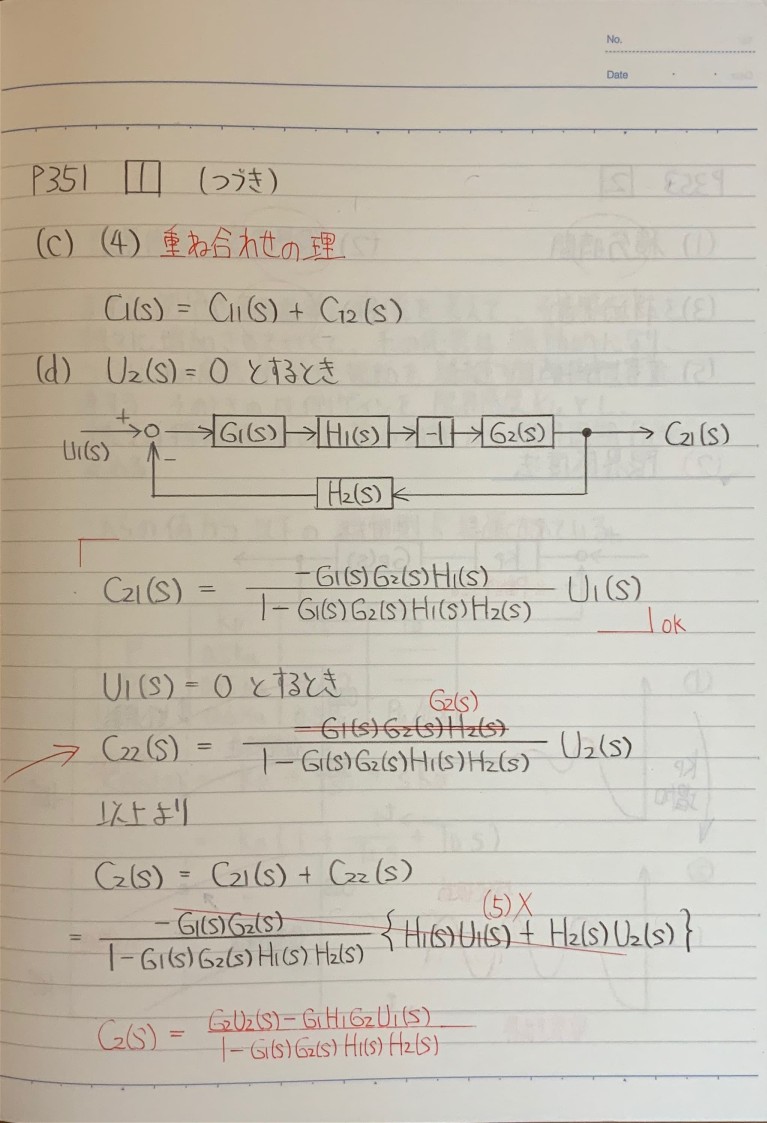 No.
Date
P351 1 (つづき)
(c) (4) 重ね合わせの理
C1(s) = C11(s) + C12(s)
(d) U2(s) = 0 とするとき
U1(s) + − G1(s) H1(s) -1 G2(s) C21(s)
H2(s)
C21(s) = -G1(s)G2(s)H1(s) / 1 - G1(s)G2(s)H1(s)H2(s) U1(s)
ok
U1(s) = 0 とするとき
G2(s)
C22(s) = -G1(s)G2(s)H2(s) / 1 - G1(s)G2(s)H1(s)H2(s) U2(s)
以上より
C2(s) = C21(s) + C22(s)
(5)×
= -G1(s)G2(s) / 1 - G1(s)G2(s)H1(s)H2(s) {H1(s)U1(s) + H2(s)U2(s)}
C2(s) = G2U2(s) - G1H1G2U1(s) / 1 - G1(s)G2(s)H1(s)H2(s)